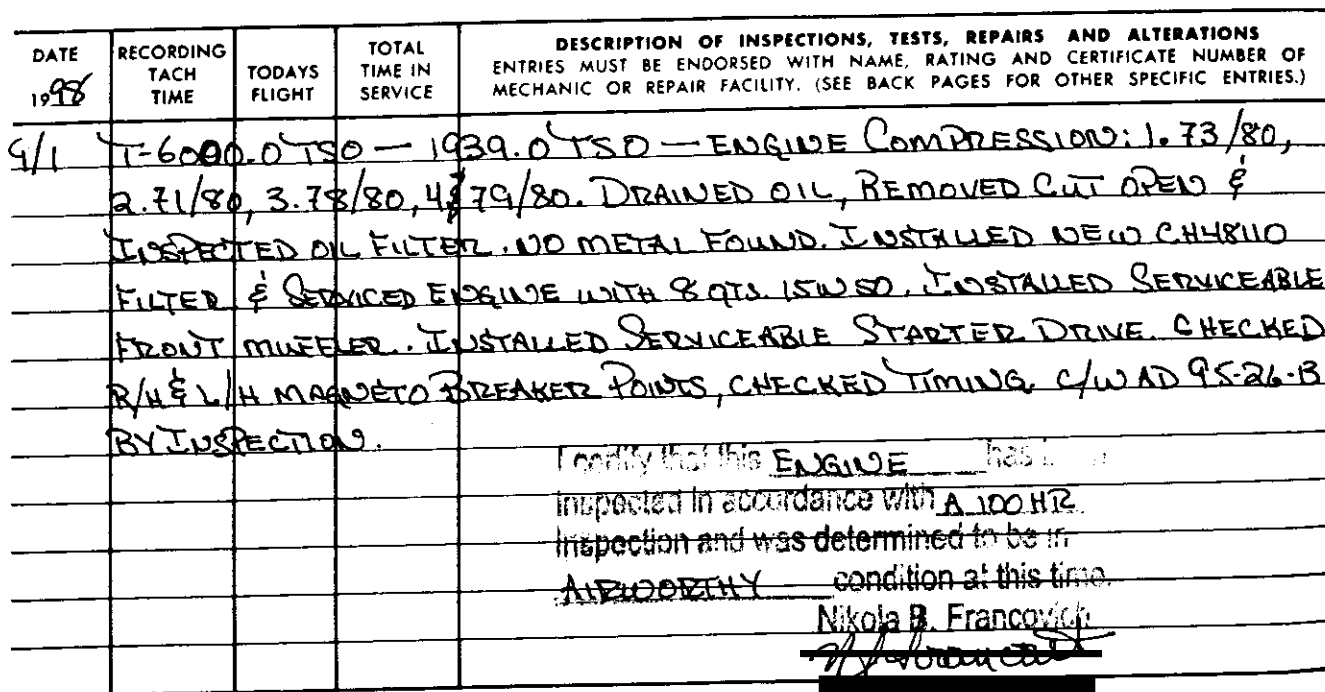 DATE
1998
RECORDING TACH TIME
TODAYS FLIGHT
TOTAL TIME IN SERVICE
DESCRIPTION OF INSPECTIONS, TESTS, REPAIRS AND ALTERATIONS
ENTRIES MUST BE ENDORSED WITH NAME, RATING AND CERTIFICATE NUMBER OF
MECHANIC OR REPAIR FACILITY. (SEE BACK PAGES FOR OTHER SPECIFIC ENTRIES.)
9/1 T-6000.0 TSO — 1939.0 TSO — ENGINE COMPRESSION: 1. 73/80,
2. 71/80, 3. 78/80, 4. 79/80. DRAINED OIL, REMOVED CUT OPEN &
INSPECTED OIL FILTER. NO METAL FOUND. INSTALLED NEW CH48110
FILTER & SERVICED ENGINE WITH 8 QTS. 15W50. INSTALLED SERVICEABLE
FRONT MUFFLER. INSTALLED SERVICEABLE STARTER DRIVE. CHECKED
R/H & L/H MAGNETO BREAKER POINTS, CHECKED TIMING. C/W AD 95-26-13
BY INSPECTION.
I certify that this ENGINE has
inspected in accordance with A 100 HR
inspection and was determined to be in
AIRWORTHY condition at this time.
Nikola B. Francovich